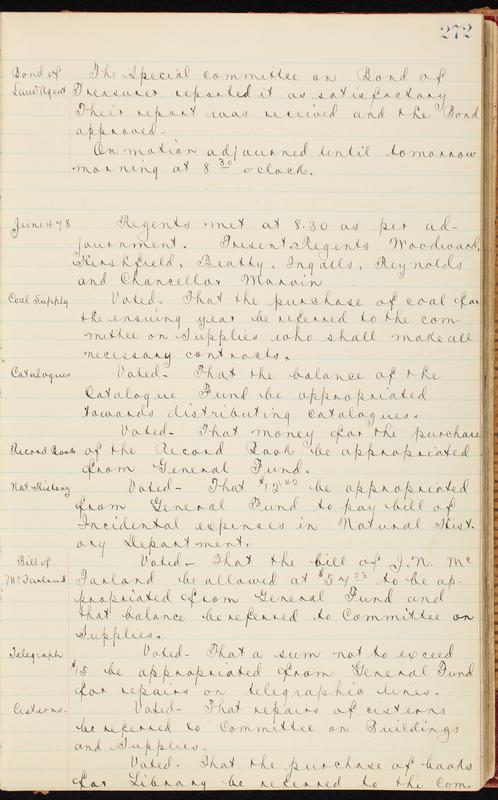 272
Bond of The Special committee on Bond of
Land Agent Treasurer reported it as satisfactory
Their report was received and the Bond
approved.
On motion adjourned until tomorrow
morning at 8 30 o'clock.
June 4 78 Regents met at 8.30 as per ad-
journment. Present Regents Woodward,
Hershfield, Beatty, Ingalls, Reynolds
and Chancellor Marvin
Coal Supply Voted- That the purchase of coal for
the ensuing year be referred to the com-
mittee on Supplies who shall make all
necessary contracts.
Catalogues Voted- That the balance of the
Catalogue Fund be appropriated
towards distributing catalogues.
Voted- That money for the purchase
Record Book of the Record Book be appropriated
from General Fund.
Nat History Voted- That $12 42 be appropriated
from General Fund to pay bill of
Incidental expenses in Natural Hist-
ory Department.
Bill of Voted- That the bill of J. N. Mc
McFarland Farland be allowed at to be ap-
propriated from General Fund and
that balance be referred to Committee on
Supplies.
Telegraph Voted- That a sum not to exceed
$15 be appropriated from General Fund
for repairs on telegraphic lines.
Cisterns- Voted- That repairs of cisterns
be referred to Committee on Buildings
and Supplies.
Voted- That the purchase of books
for Library be referred to the Com-